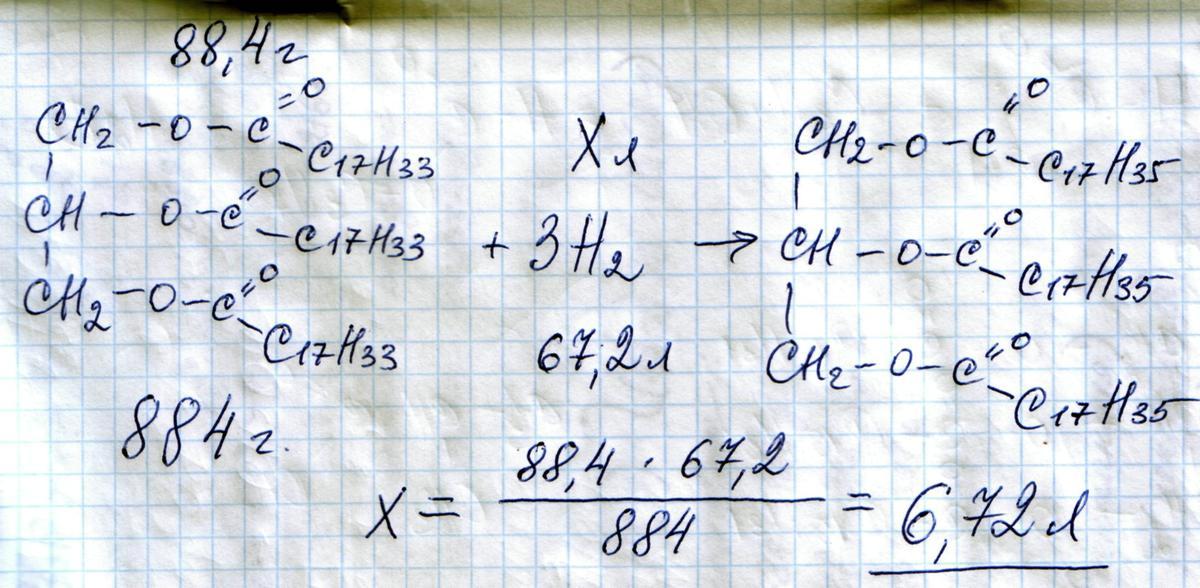 88,4 г
CH₂ – O – C =O – C₁₇H₃₃
CH – O – C =O – C₁₇H₃₃
CH₂ – O – C =O – C₁₇H₃₃
884 г.
X л
+ 3H₂ →
67,2 л
CH₂ – O – C =O – C₁₇H₃₅
CH – O – C =O – C₁₇H₃₅
CH₂ – O – C =O – C₁₇H₃₅
X = 88,4 · 67,2 / 884 = 6,72 л